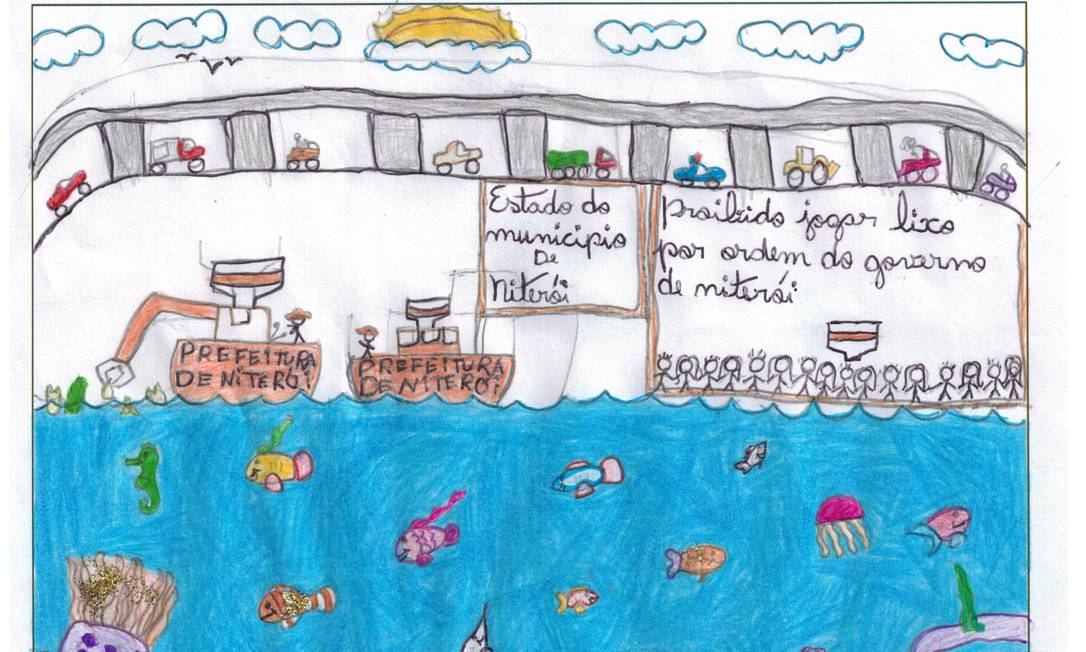 Estado do
municipio
De
Niterói
Proibido jogar lixo
por ordem do governo
de niterói
PREFEITURA
DE NITERÓI
PREFEITURA
DE NITERÓI